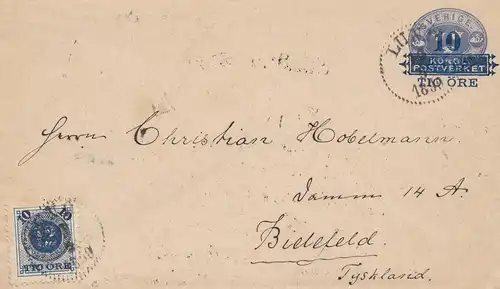 SVERIGE
10
KONGL.
POSTVERKET
TIO ÖRE
LU
Herrn Christian Hobelmann.
Damm 14 A.
Bielefeld.
Tyskland.
10 10
12
TIO ÖRE